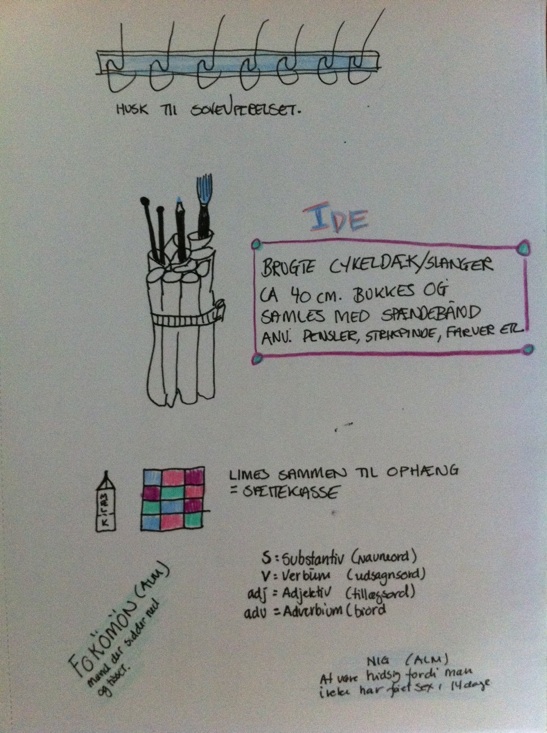 HUSK TIL
IDE
BRUGTE CYKELDÆK/SLANGER
CA 40 CM. BUKKES OG
SAMLES MED SPÆNDEBÅND
ANV. PENSLER, STRIKPINDE, FARVER ETC.
KIRAS
LIMES SAMMEN TIL OPHÆNG
= SÆTTEKASSE
S = Substantiv (navneord)
V = Verbum (udsagnsord)
adj = Adjektiv (tillægsord)
adv = Adverbium (biord
FÖKÖMÖN (ALM)
mænd der sidder ned
og tisser.
NIG (ALM)
At være hidsig fordi man
ikke har fået sex i 14 dage